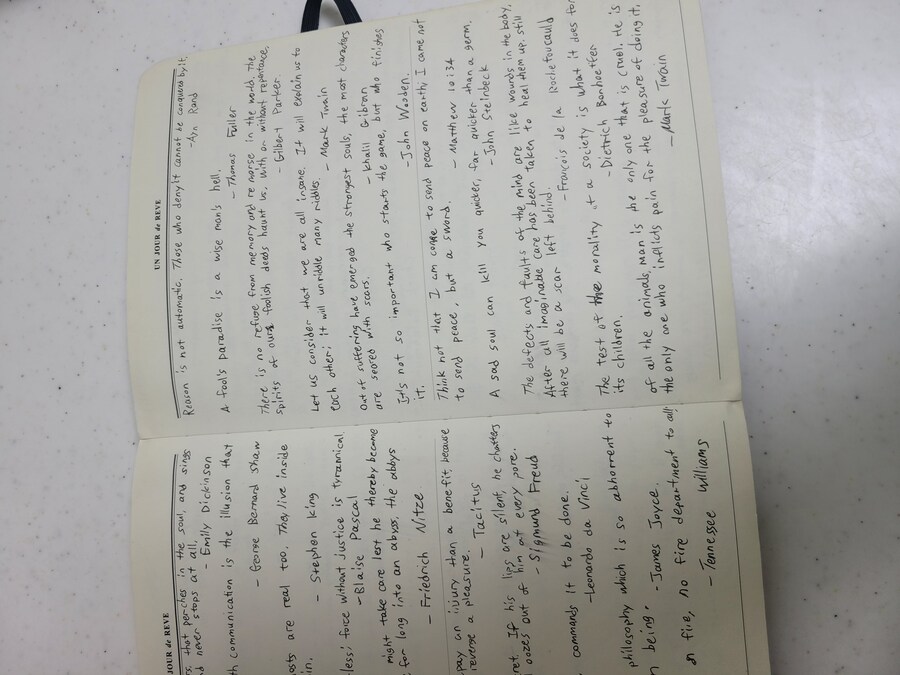 JOUR de REVE
that perches in the soul, and sings
never stops at all,
- Emily Dickinson
communication is the illusion that
- George Bernard Shaw
are real too. They live inside
- Stephen King
force without justice is tyrannical.
- Blaise Pascal
might take care lest he thereby become
for long into an abyss, the abbys
- Friedrich Nitze
an injury than a benefit, because
reverge a pleasure.
- Tacitus
If his lips are silent, he chatters
oozes out of him at every pore.
- Sigmund Freud
commands it to be done.
- Leonardo da Vinci
philosophy which is so abhorrent to
being.
- James Joyce.
on fire, no fire department to call
- Tennessee Williams
UN JOUR de REVE
Reason is not automatic. Those who deny it cannot be conquered by it,
- Ayn Rand
A fool's paradise is a wise man's hell,
- Thomas Fuller
There is no refuse from memory and remorse in the world, The
spirits of our foolish deeds haunt us, with or without repentance,
- Gilbert Parker.
Let us consider that we are all insane. It will explain us to
each other; it will unriddle many riddles.
- Mark Twain
Out of suffering have emerged the strongest souls, the most characters
are seared with scars.
- Khalil Gibran
It's not so important who starts the game, but who finishes
it.
- John Wooden.
Think not that I am come to send peace on earth; I came not
to send peace, but a sword.
- Matthew 10:34
A sad soul can kill you quicker, far quicker than a germ.
- John Steinbeck
The defects and faults of the mind are like wounds in the body,
After all imaginable care has been taken to heal them up. still
there will be a scar left behind.
- François de la Rochefoucauld
The test of the morality of a society is what it does for
its children.
- Dietrich Bonhoeffer
of all the animals, man is the only one that is cruel. He is
the only one who inflicts pain for the pleasure of doing it,
- Mark Twain